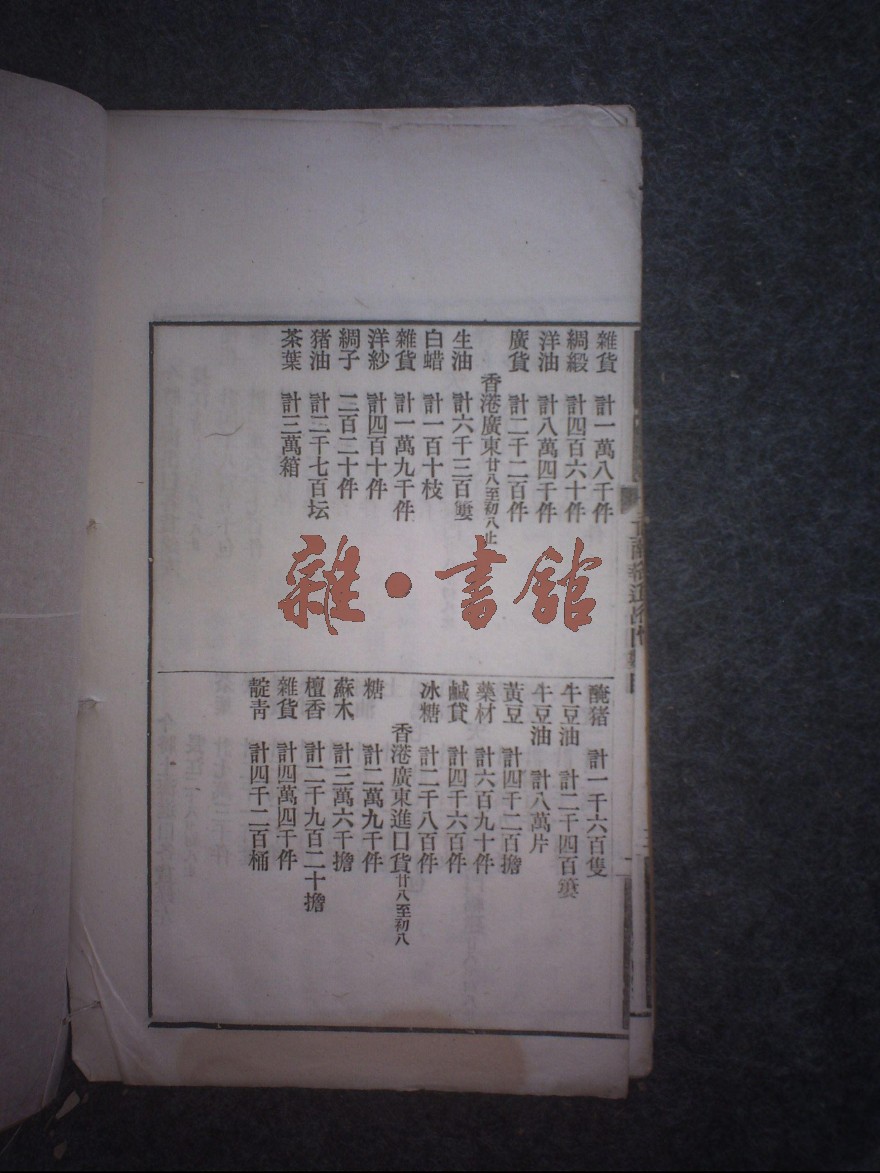 雜貨 計一萬八千件
綢緞 計四百六十件
洋油 計八萬四千件
廣貨 計二千二百件
香港廣東廿八至初八止
生油 計六千三百簍
白蜡 計一百十枝
雜貨 計一萬九千件
洋紗 計四百十件
綢子 二百二十件
猪油 計三千七百坛
茶葉 計三萬箱
醃猪 計一千六百隻
牛豆油 計二千四百簍
牛豆油 計八萬片
黃豆 計四千二百擔
藥材 計六百九十件
鹹貨 計四千六百件
冰糖 計二千八百件
香港廣東進口貨廿八至初八
糖 計二萬九千件
蘇木 計三萬六千擔
檀香 計二千九百二十擔
雜貨 計四萬四千件
靛青 計四千二百桶
雜·書館